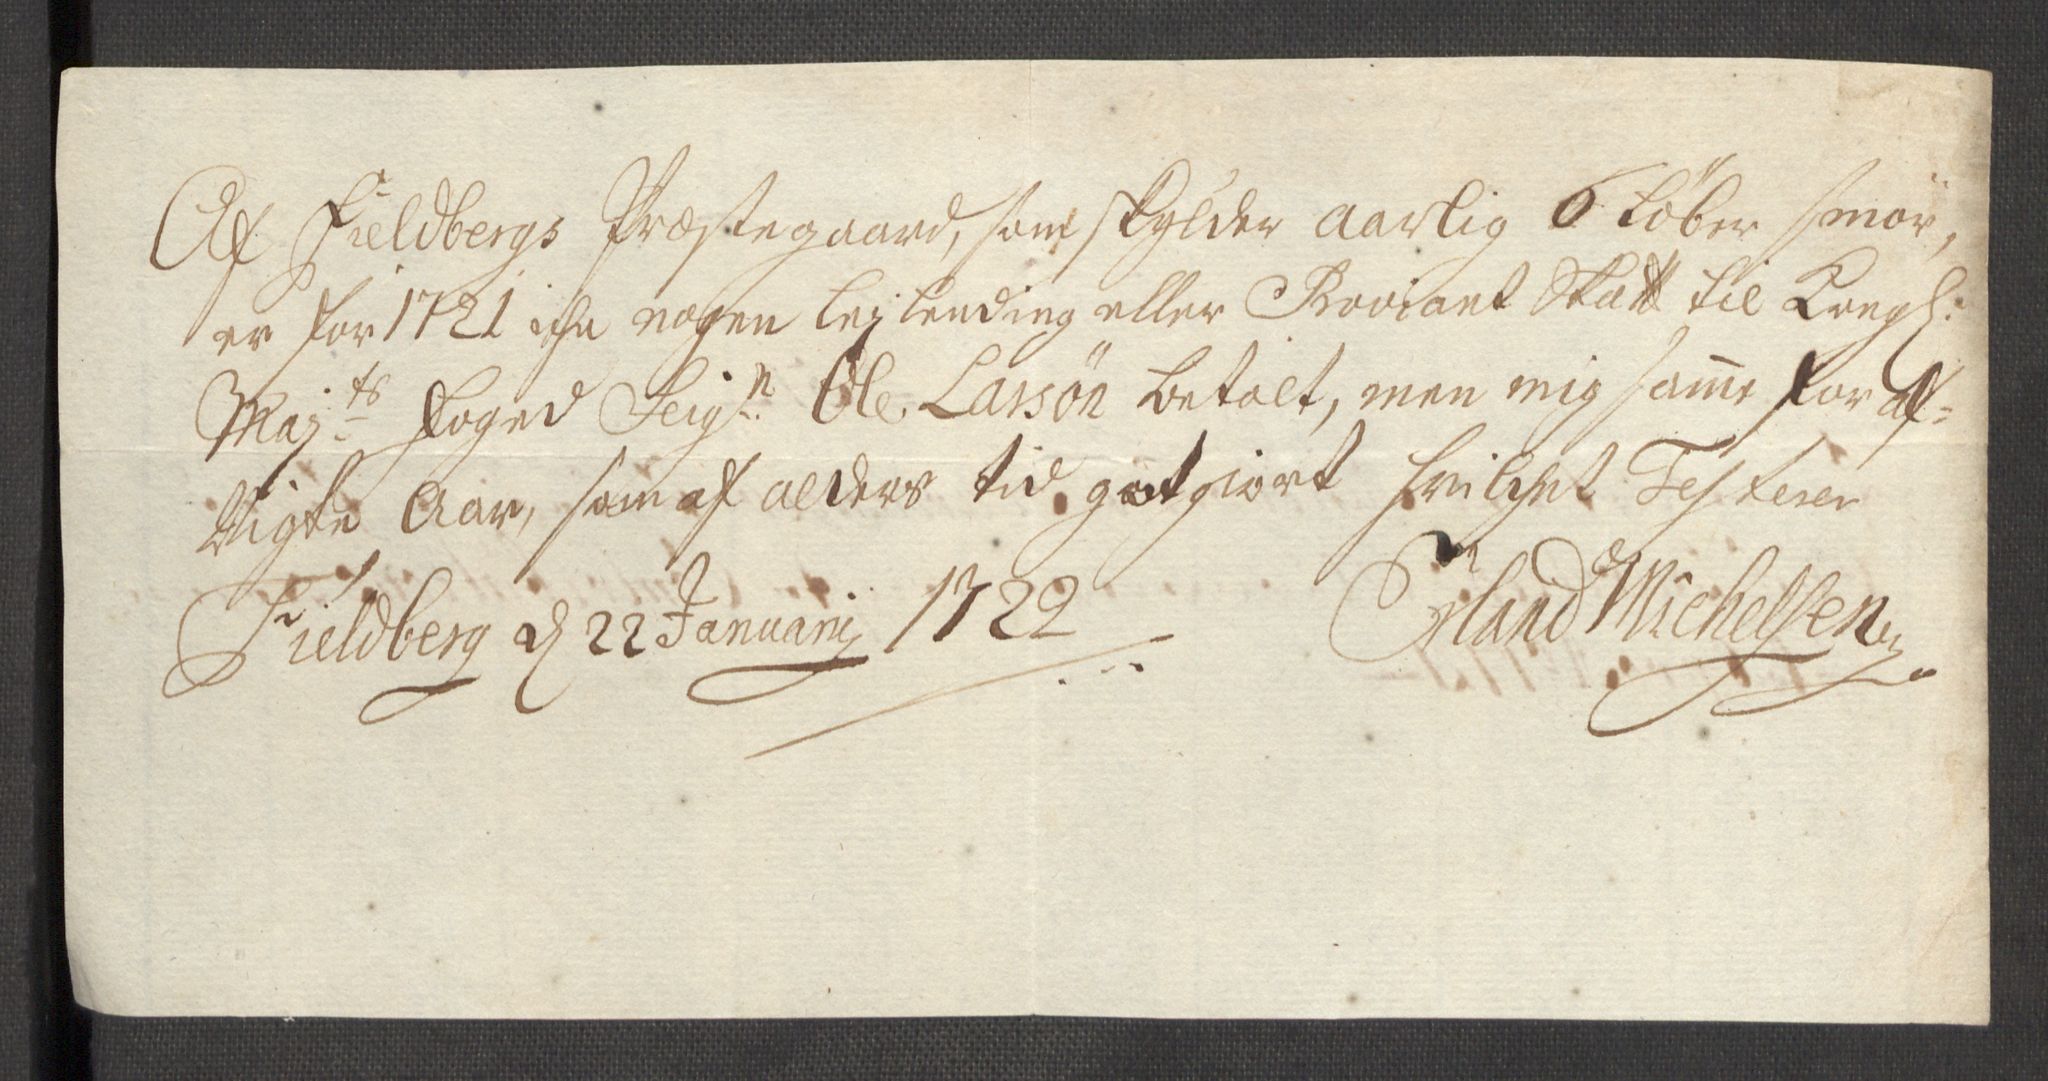 Af Fieldbergs Præstegaard, som skylder aarlig 6 Løber smör,
er for 1721 iche nogen leylending eller Proviant Skatt til Kongl:
Maj:ts Foged Seig:r Ole Larsön betalt, men mig samme for af-
vigte Aar, som af alders tid godtgiort hvilchet Testerer
Fieldberg d 22 Januarij 1722 Erland Michelsen